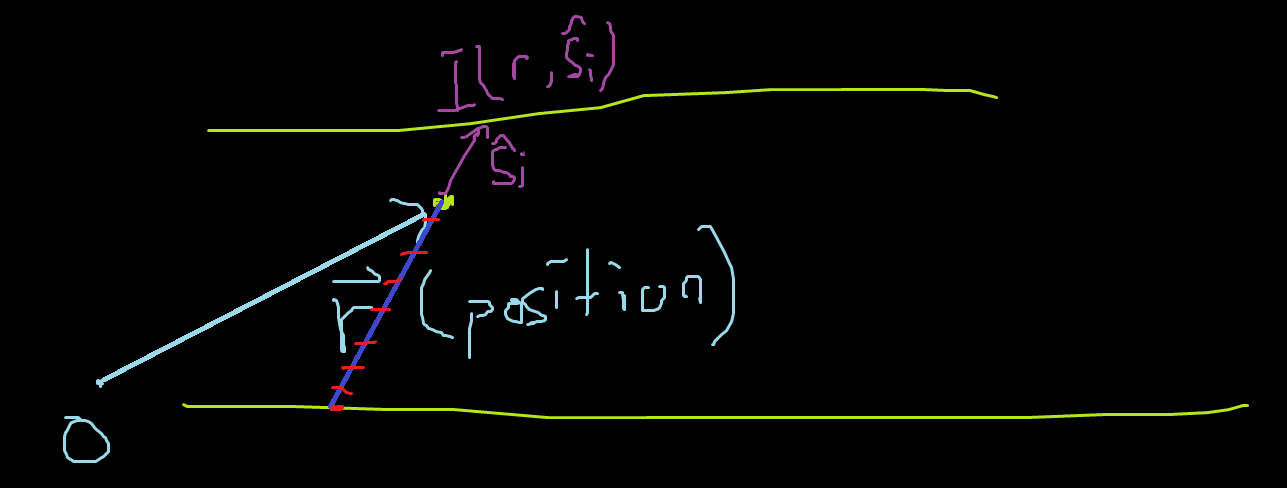 I(r, ŝi)
ŝi
r⃗ (position)
O